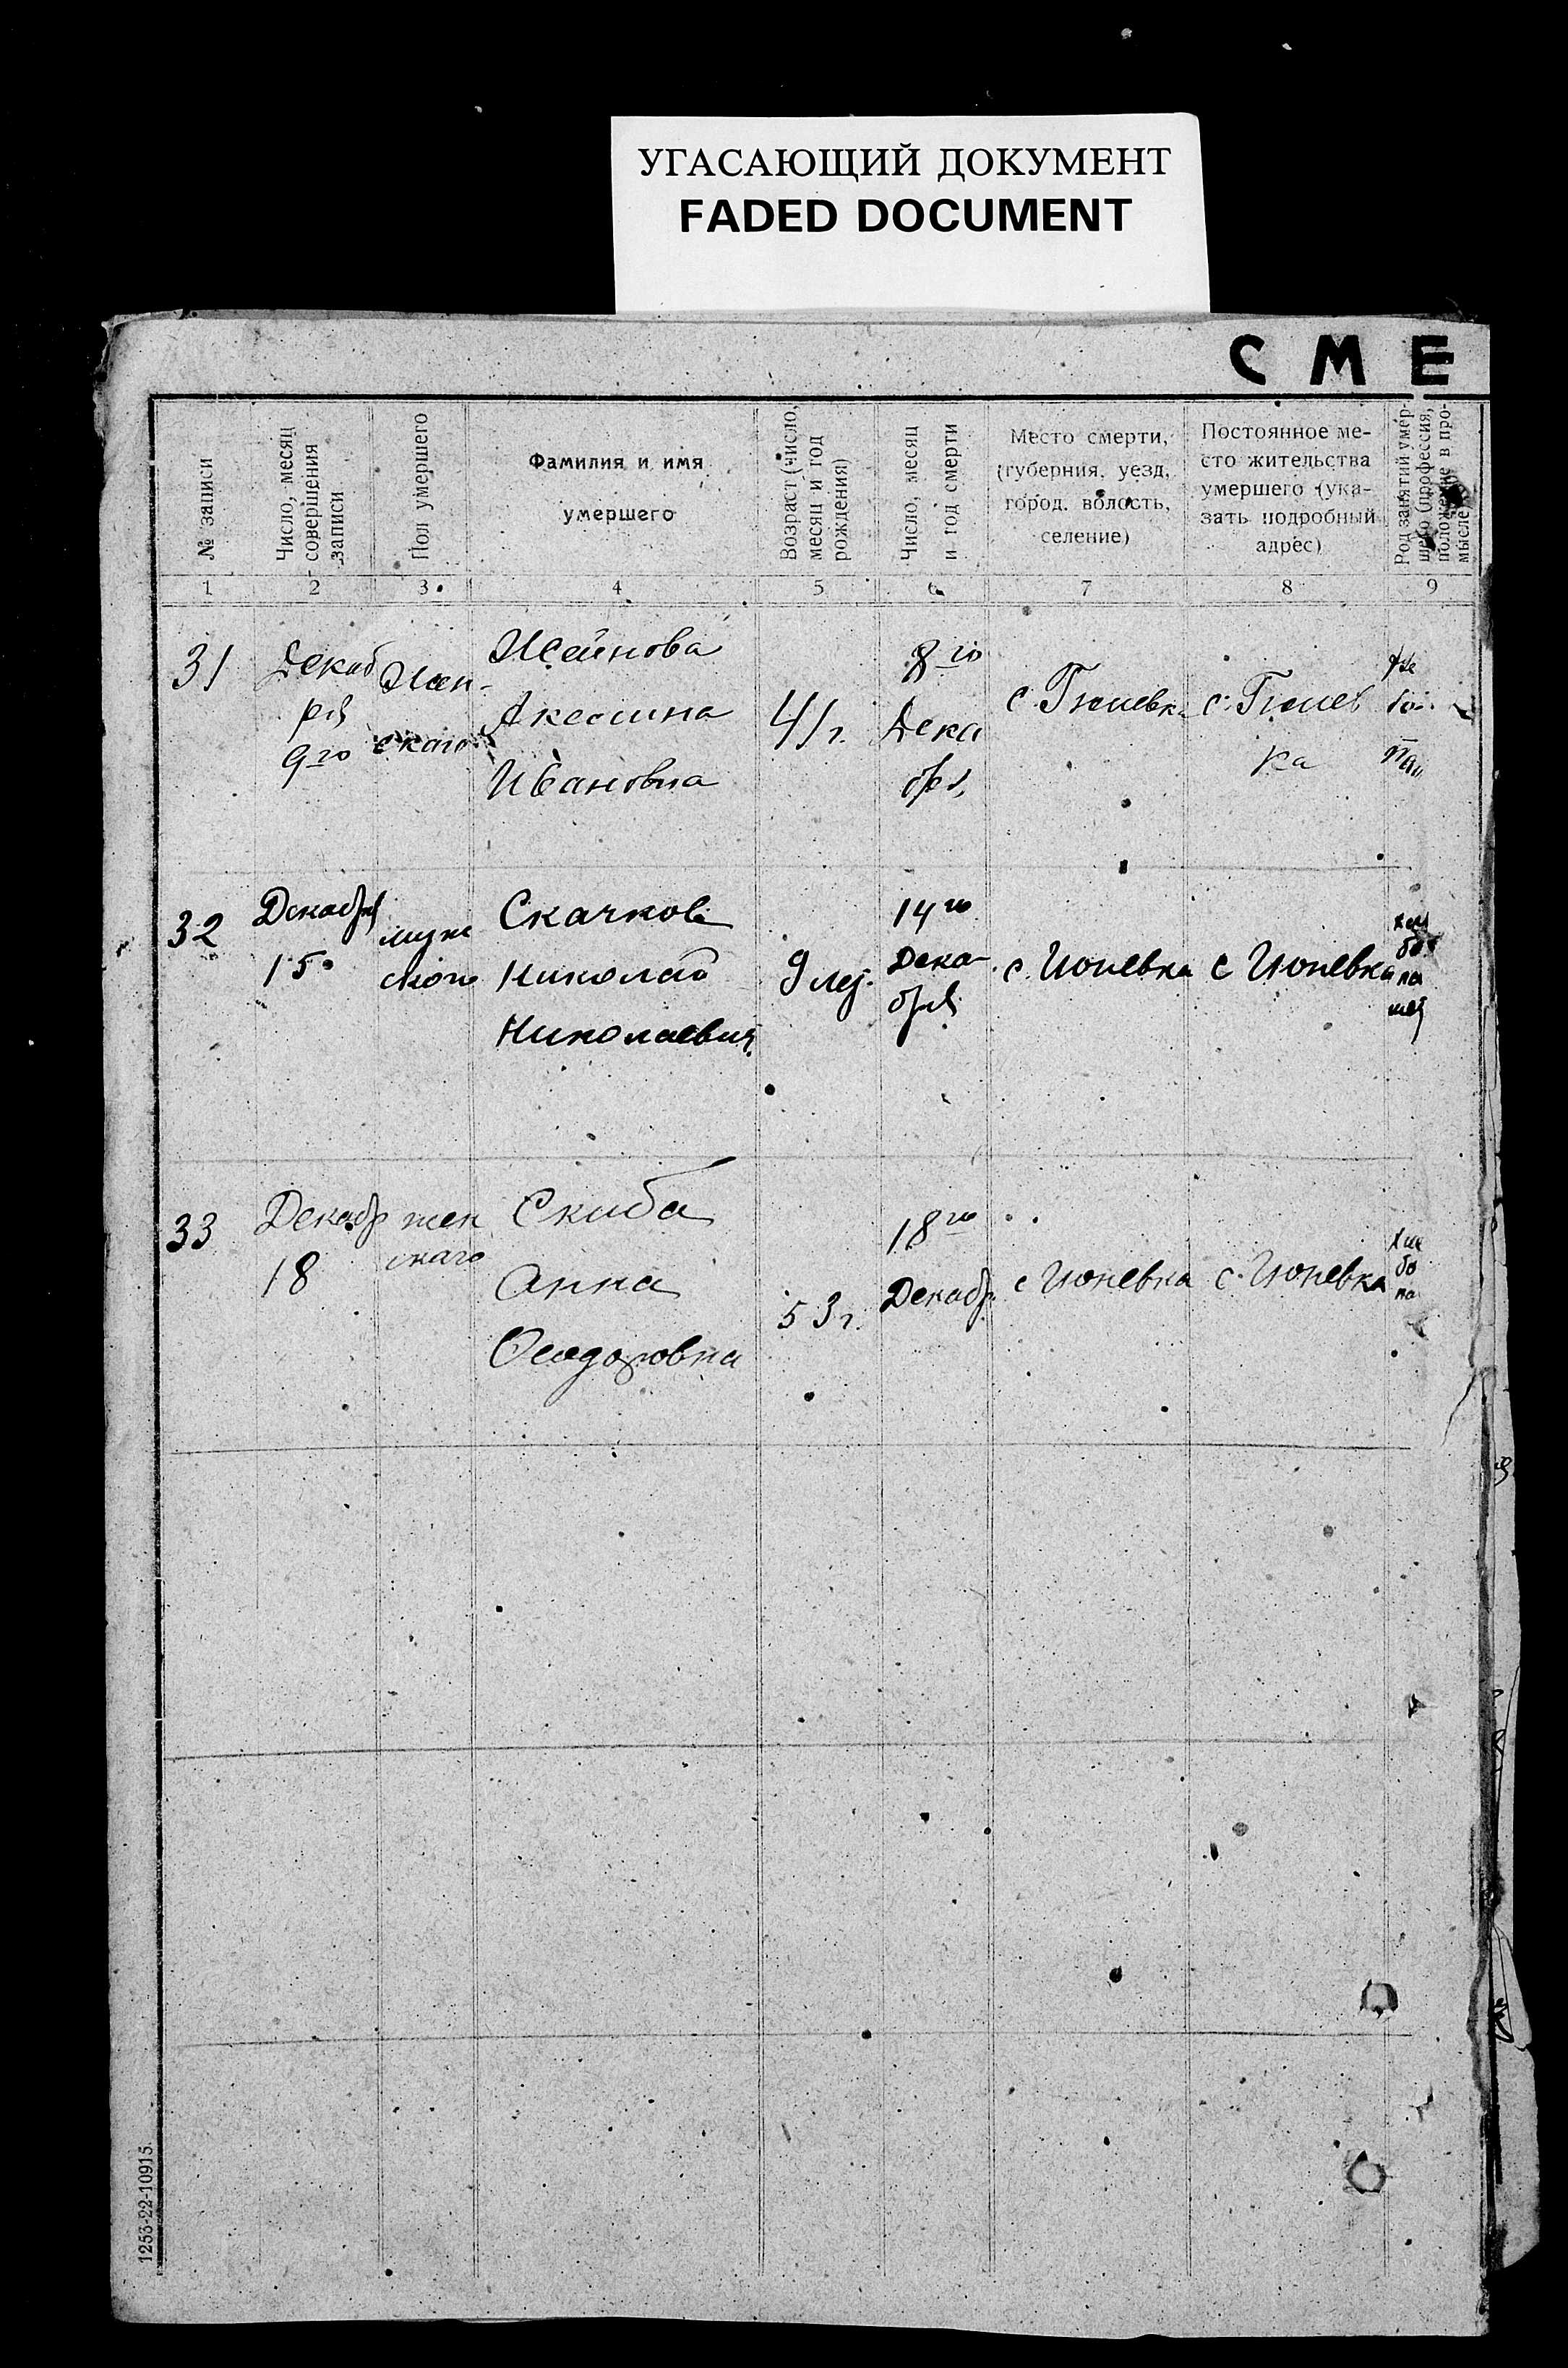 УГАСАЮЩИЙ ДОКУМЕНТ
FADED DOCUMENT
СМЕ
№ записи
Число, месяц
совершения
записи
Пол умершего
Фамилия и имя
умершего
Возраст (число,
месяц и год
рождения)
Число, месяц
и год смерти
Место смерти,
(губерния, уезд,
город, волость,
селение)
Постоянное ме-
сто жительства
умершего (ука-
зать подробный
адрес)
Род занятий умер-
шего (профессия,
положение в про-
мысле
1 2 3 4 5 6 7 8 9
31
Декаб
ря
9го
Жен-
скаго
Акссиина
Ивановна
41 г.
8го
Дека
бря
с.
с.
ка
32
Декабря
15
муже
ского
Скачков
Николай
Николаевич
9 лет.
14го
Дека-
бря
с. Июневка
с Июневка
33
Декабр
18
жен
скаго
Скиба
Анна
Феодоровна
53 г.
18го
Декабр
с Июневка
с. Июневка
1253-22-10915.